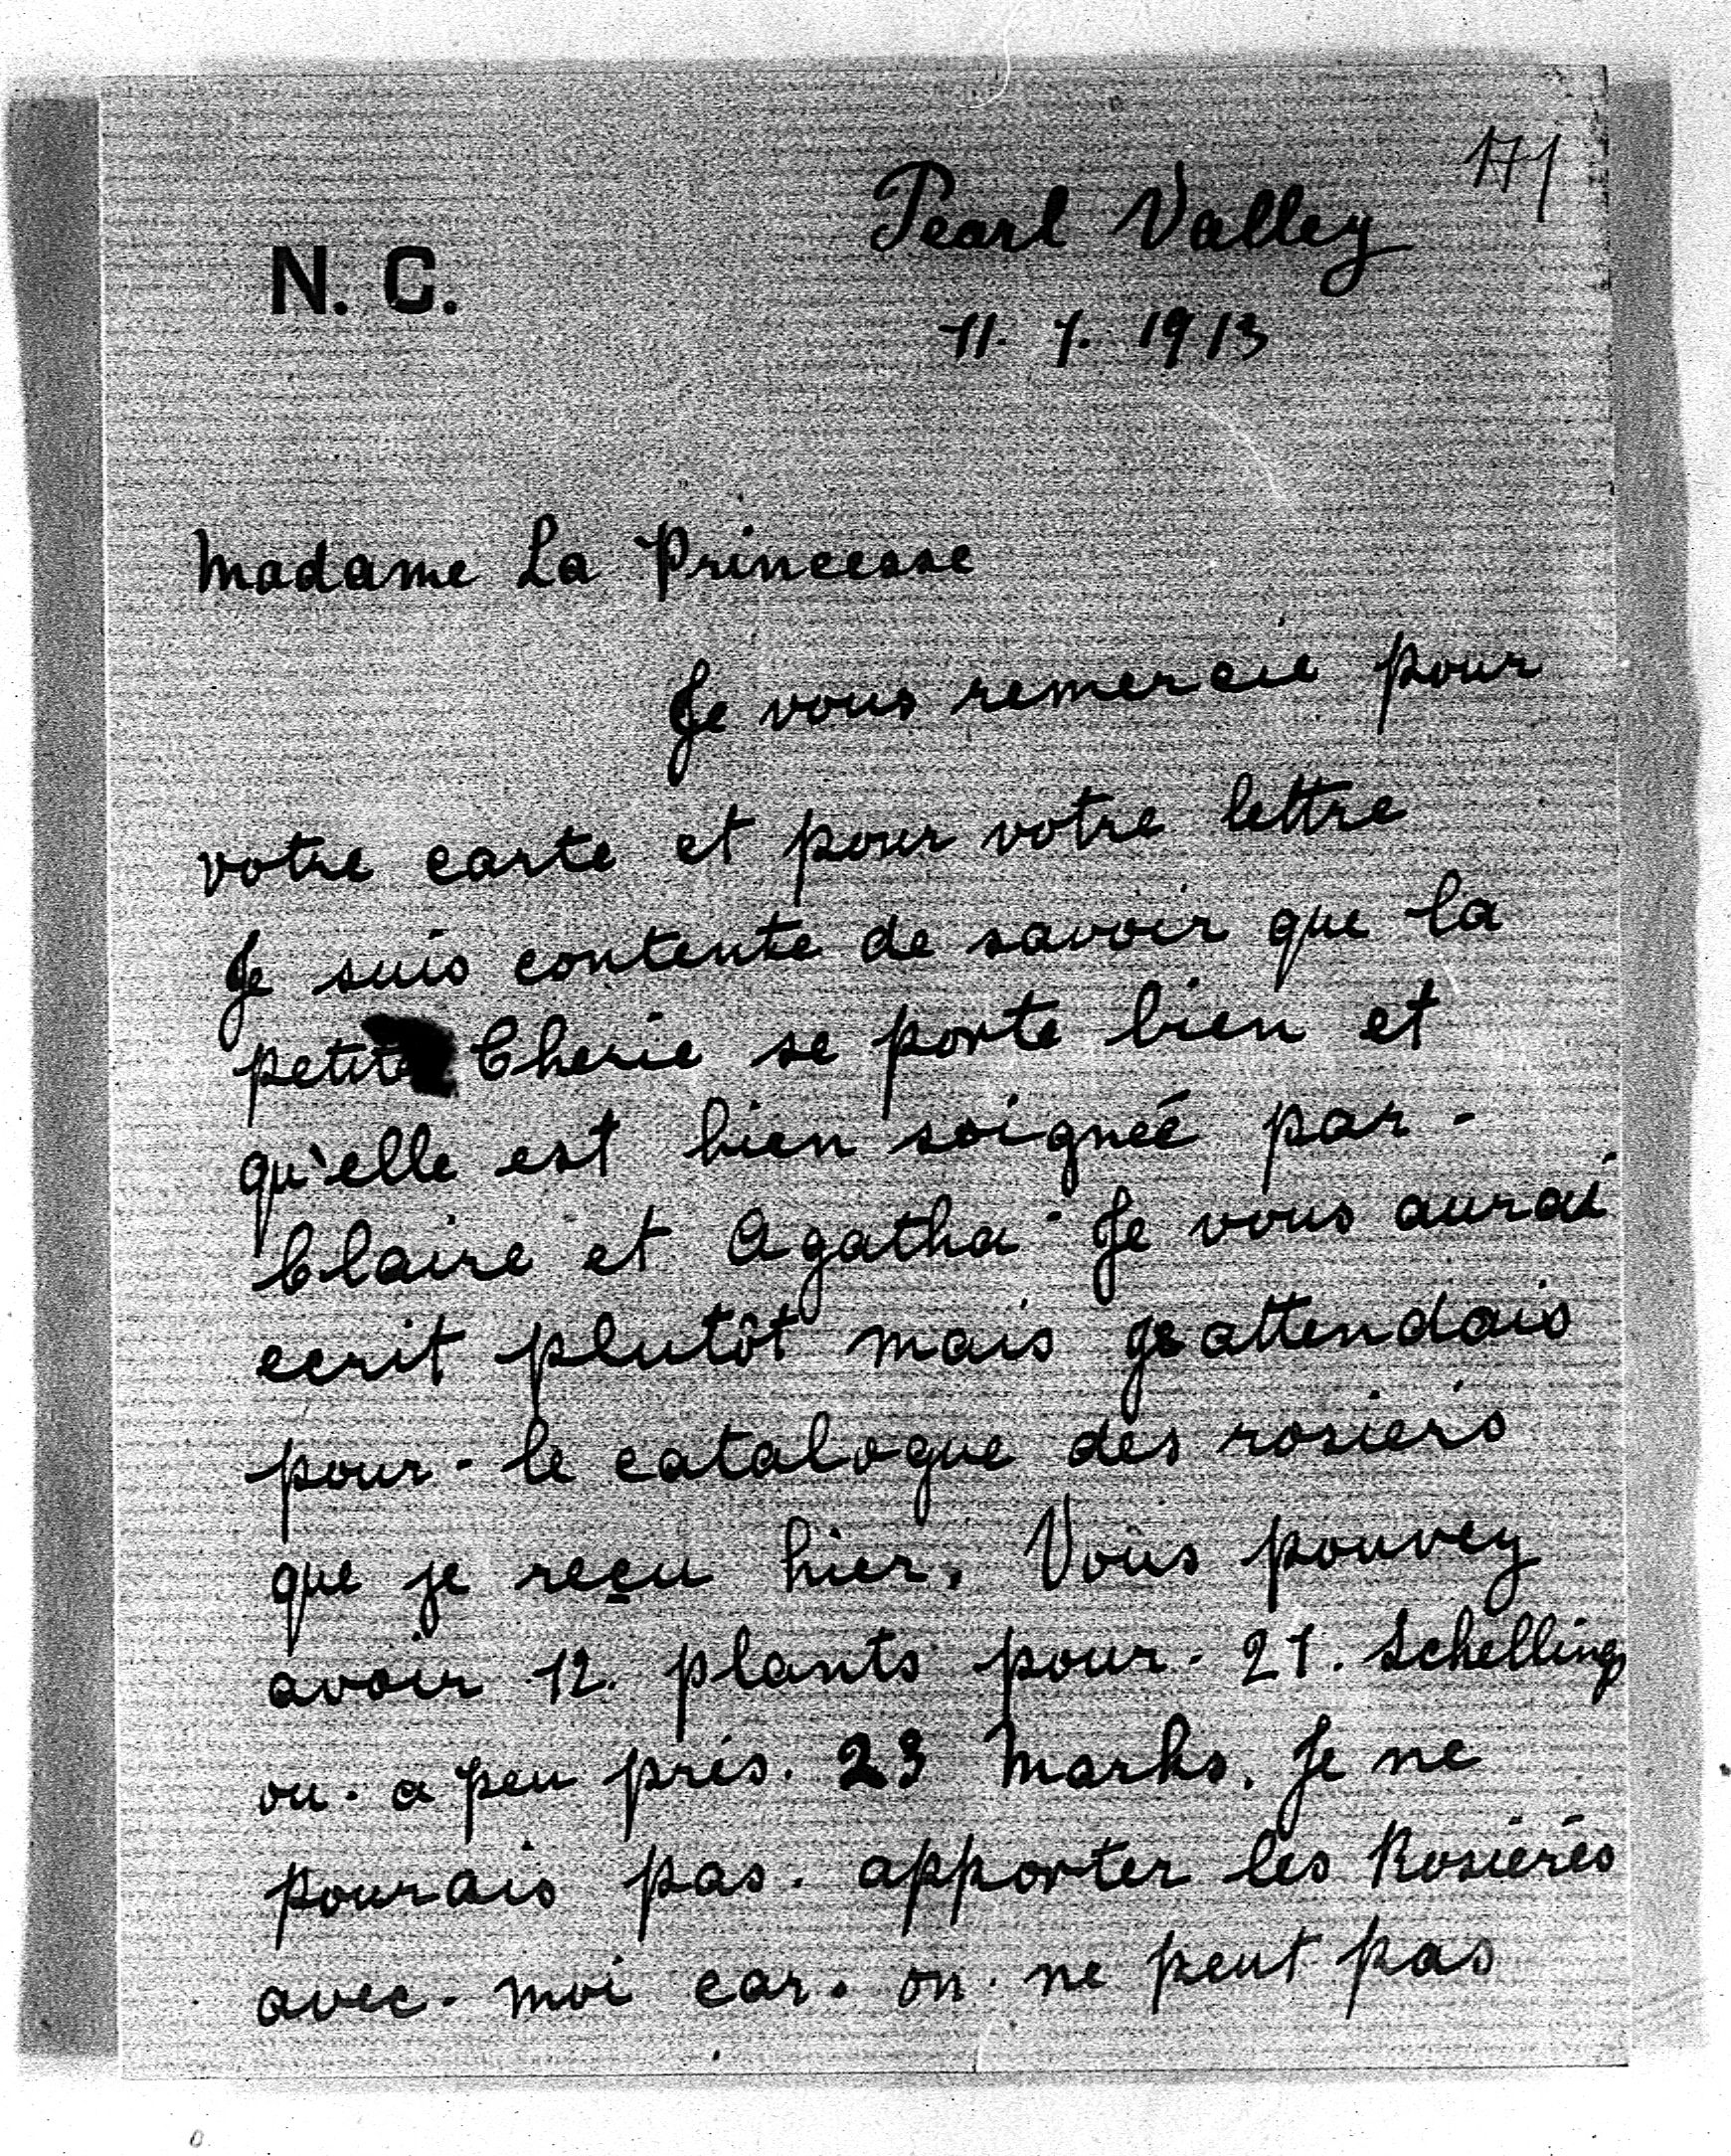 171
Pearl Valley
N. C.
11. 7. 1913
Madame La Princesse
Je vous remercie pour
votre carte et pour votre lettre
Je suis contente de savoir que la
petite Cherie se porte bien et
qu'elle est bien soigneé par -
Claire et Agatha Je vous aurai
ecrit plutôt mais je attendais
pour - le catalogue des rosiers
que je reçu hier. Vous pouvez
avoir 12. plants pour - 21. Schellings
ou - a peu prés. 23 Marks. Je ne
pourais pas. apporter les Rosiérés
avec - moi car. on ne peut pas